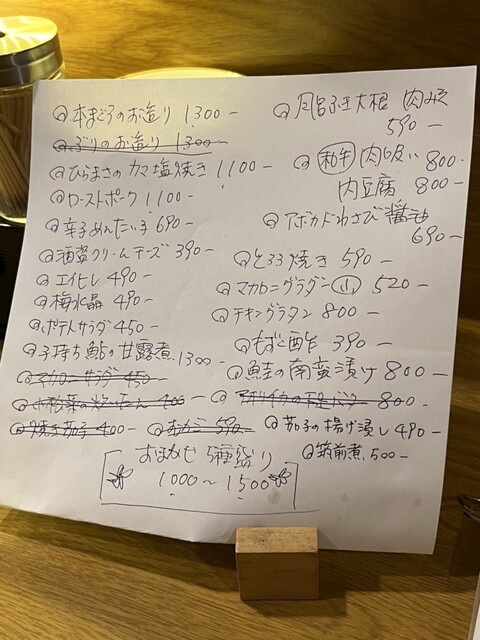 本まぐろのお造り 1300-
ぶりのお造り 1300-
ひらまさのカマ塩焼き 1100-
ローストポーク 1100-
辛子めんたい子 690-
酒盗クリームチーズ 390-
エイヒレ 490-
梅水晶 490-
ポテトサラダ 450-
子持ち鮎の甘露煮 1300-
マカロニサラダ 450-
小松菜の 400-
焼き茄子 400-
風呂ふき大根 肉みそ
590-
和牛 肉吸い 800-
肉豆腐 800-
アボカドわさび醤油
690-
とろろ焼き 590-
マカロニグラタン 小 520-
チキングラタン 800-
もずく酢 390-
鮭の南蛮漬け 800-
800-
590-
茄子の揚げ浸し 490-
筑前煮 500-
おまかせ 5種盛り
1000〜1500